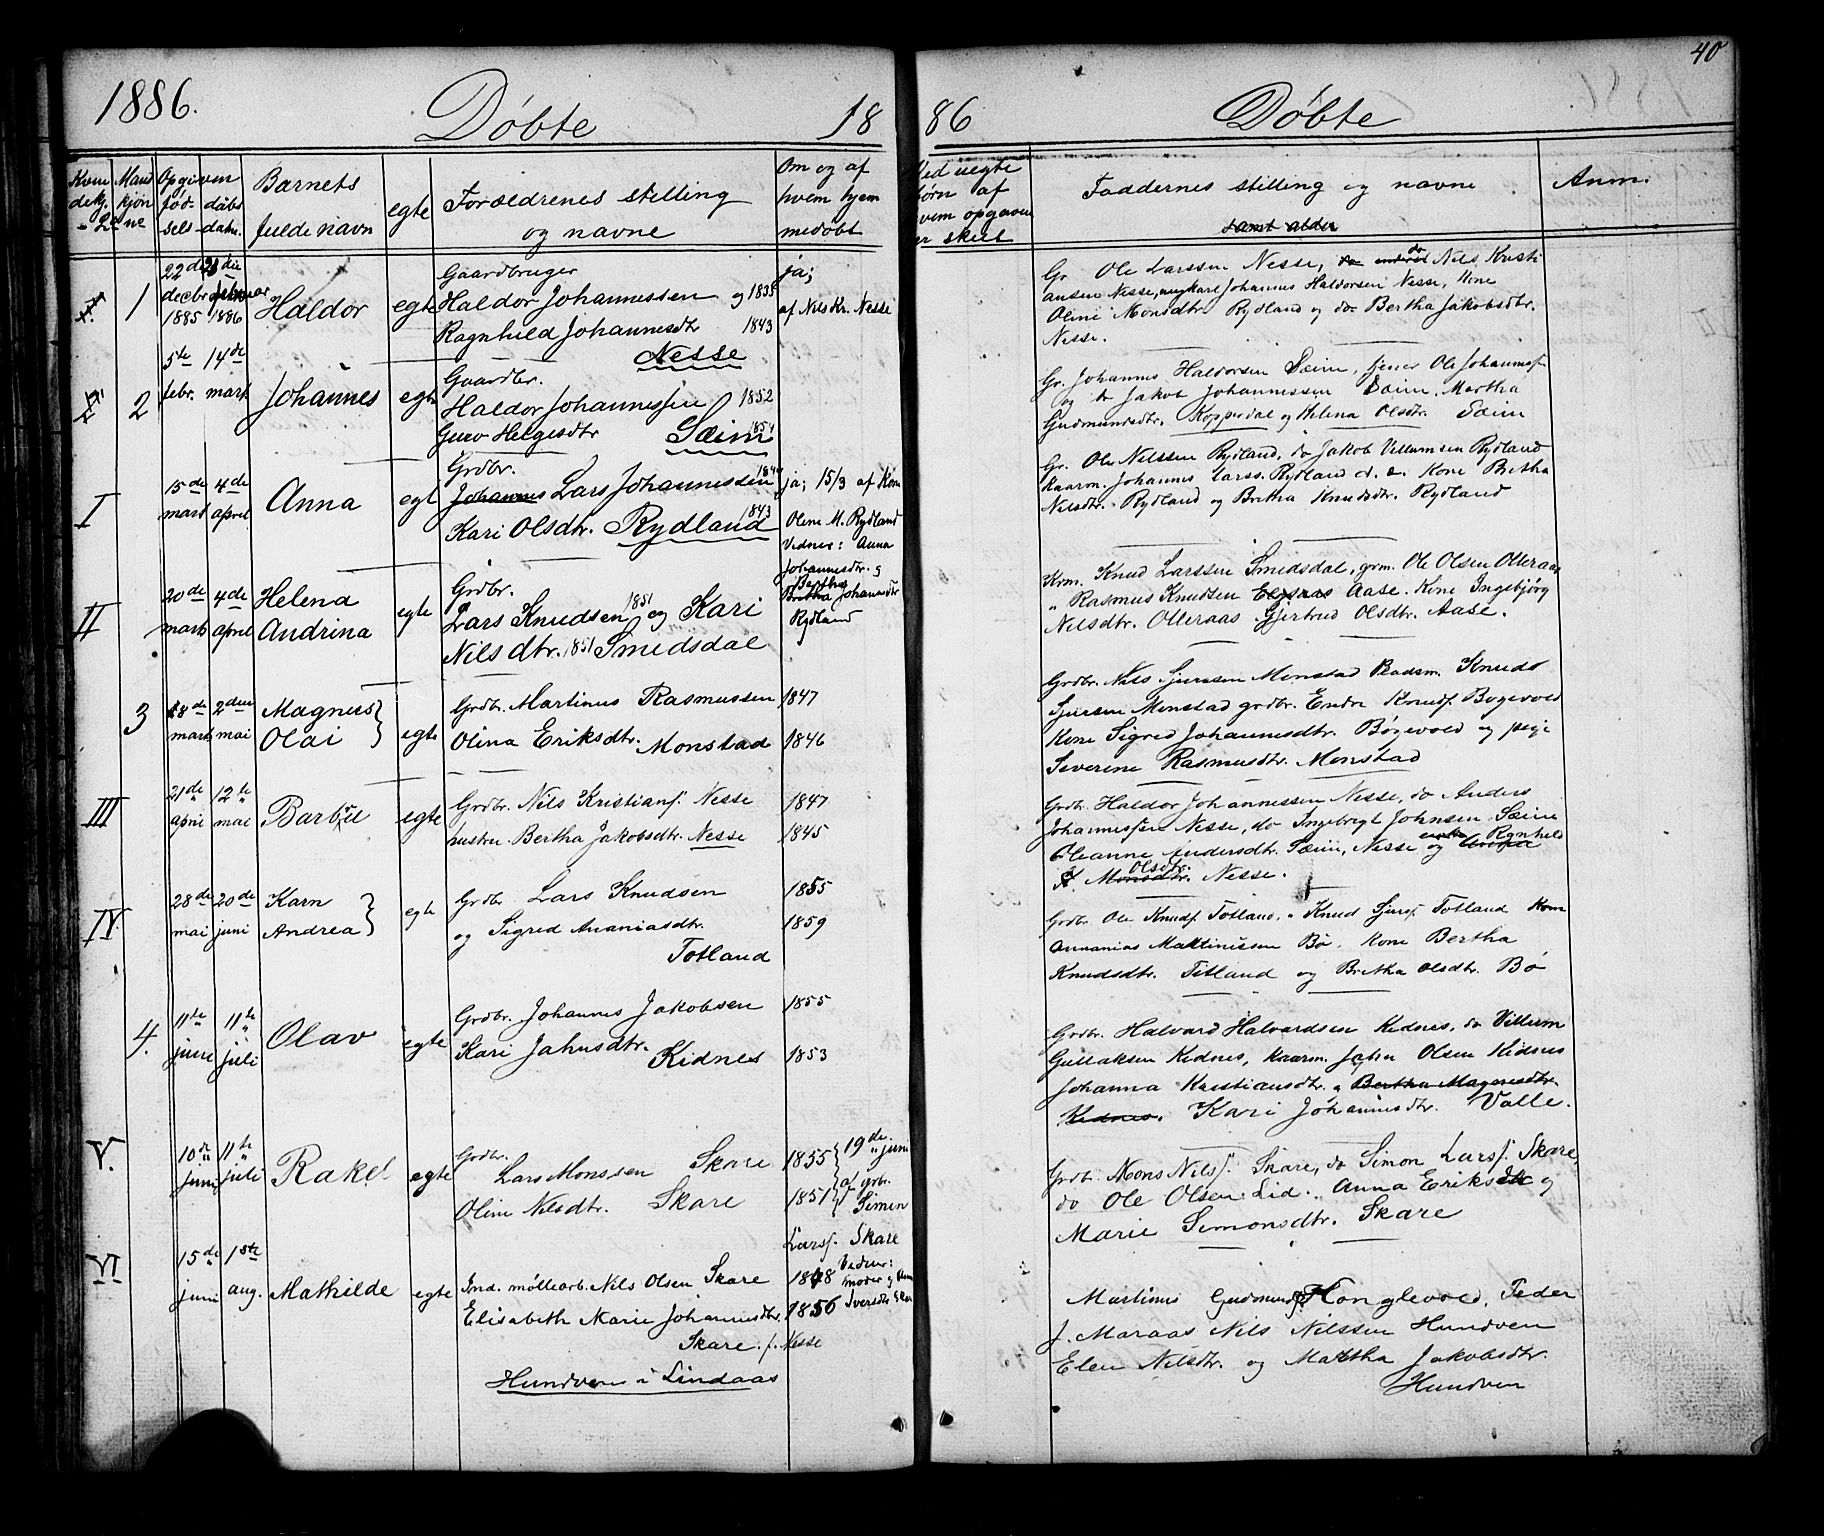 1886.
Döbte
18
Kvin
dekj.
Mand
kjön
nene
Opgiven
föd-
sels-
daabs
datu.
Barnets
fulde navn
egte
Forældrenes stilling
og navne
Om og af
hvem hjem
medöbt
1
22de
decbr
1885
21 die
februar
1886
Haldor
egte
Gaardbruger
Haldor Johannessen og 1835
Ragnhild Johannesdtr 1843
Nesse
ja;
af Nils Kr. Nesse
2
5te
febr.
14de
mart
Johannes
egte
Gaardbr.
Haldor Johannessen 1852
Guro Helgesdtr 1854
Sæim
I
15de
mart
4de
april
Anna
egt
Grdbr.
Johannes Lars Johannessen
Kari Olsdtr. Rydland 1843
ja; 15/3 af Kone
Oline M. Rydland
Vidner: Anna
Johannesdtr. og
Bertha
Britha Johansdtr
Rydland
II
20de
mart
4de
april
Helena
Andrina
egte
Grdbr.
Lars Knudsen 1851 og Kari
Nilsdtr. 1851 Smidsdal
3
18de
mart
2den
mai
Magnus
Olai
egte
Grdbr. Martinus Rasmussen 1847
Olina Eriksdtr. Monstad 1846
III
21de
april
12te
mai
Barbru
egte
Grdbr. Nils Kristians. Nesse 1847
hustru Bertha Jakobsdtr. Nesse 1845
IV.
28de
mai
20de
juni
Karn
Andrea
egte
Grdbr Lars Knudsen 1855
og Sigred Ananiasdtr. 1859
Totland
4.
11te
juni
11te
juli
Olav
egte
Grdbr. Johannes Jakobsen 1855
Kari Jahnsdtr. Kidnes 1853
V.
10de
juni
11te
juli
Rakel
egte
Grdbr.
Lars Monssen Skare 1855
Oline Nilsdtr. Skare 1851
19de juni
af grbr.
Simen
Larss. Skare
VI
15de
juni
1ste
aug.
Mathilde
egte
Ind. möllearb. Nils Olsen Skare 1848
Elisabeth Marie Johannesdtr. 1856
Skare f. Nesse
Hundven i Lindaas
Vidner:
moder og
Iversdtr Skare
40
86
Döbte
Ved uegte
börn af
hvem opgiven
er skeet
Faddernes stilling og navne
samt alder
Anm.
Gr. Ole Larssen Nesse, do Nils Kristi
ansen Nesse, ungkarl Johannes Haldorsen Nesse, Kone
Oline Monsdtr. Rydland og do Bertha Jakobsdtr.
Nesse.
Gr. Johannes Haldorsen Sæim, tjener Ole Johanness.
og do Jakob Johannessen Sæim. Martha
Gudmundsdtr. Kopperdal og Helena Olsdtr. Sæim
Gr. Ole Nilssen Rydland, do Jakob Villumsen Rydland
Kaarm. Johannes Larss. Rydland Kone Britha
Nilsdtr. Rydland og Britha Knudsdtr. Rydland
Krm. Knud Larssen Smidsdal, grm. Ole Olsen Olleraas
" Rasmus Knudsen Aase. Kone Ingebjörg
Nilsdtr. Olleraas Gjertrud Olsdtr. Aase.
Grdbr. Nils Sjursen Monstad Baadsm. Knud
Sjursen Monstad grdbr. Endre Knuds. Bögevold
Kone Sigred Johannesdtr. Bögevold og pige
Severine Rasmusdtr. Monstad
Grdbr. Haldor Johannessen Nesse, do Anders
Johannessen Nesse, do Ingebrigt Johnsen Sæim
Oleanne Andersdtr. Sæim, Nesse og enke Rgnhild
Olsdtr.
Monsdtr. Nesse.
Grdbr. Ole Knuds. Totland, " Knud Sjurs. Totland Krm
Annanias Mattinissen Bö. Kone Bertha
Knudsdtr. Titland og Britha Olsdtr. Bö
Grdbr. Halvard Halvardsen Kidnes, do Villum
Gullaksen Kidnes, Kaarm. John Olsen Kidnes
Johanna Kristiansdtr. og Bertha Magnesdtr.
Kidnes. Kari Johannesdtr. Valle.
Grdbr. Mons Nilss. Skare, do Simon Larss. Skare,
do Ole Olsen Lid. Anna Eriksdtr og
Marie Simonsdtr. Skare
Martinus Gudmunds. Honglevold. Peder
J. Maraas Nils Nilssen Hundven
Elen Nilsdtr. og Martha Jakobsdtr.
Hundven